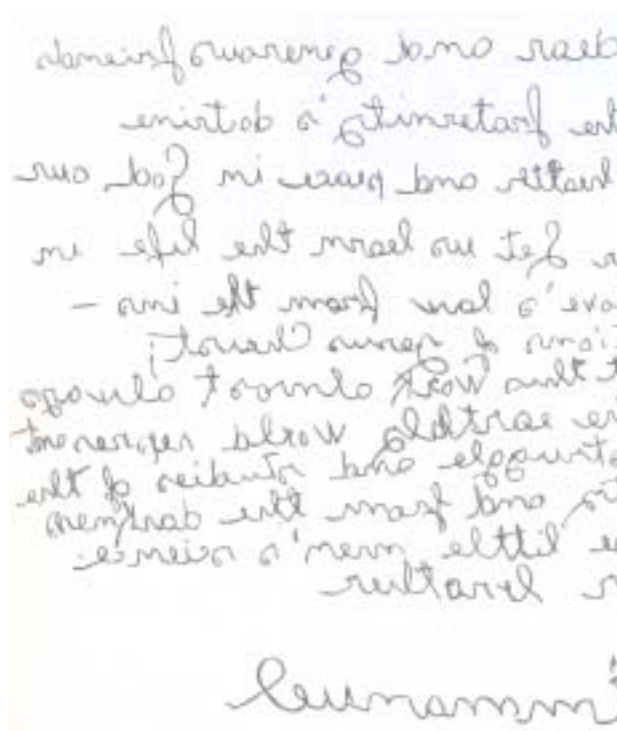 dear and generous friends
the fraternity's dotrine
health and peace in God our
Let us learn the life in
law from the ins -
of Jesus Christ!
this Work almost always
earthly World represent
struggle and studies of the
and from the darkness
little men's science
brother
Emmanuel